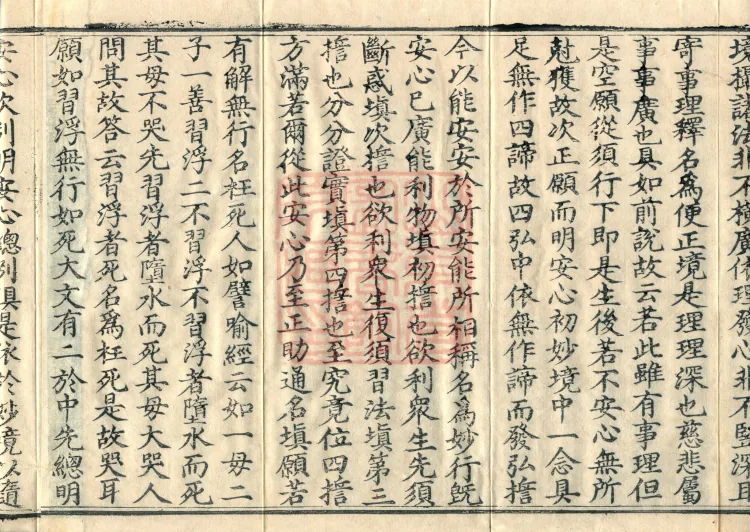 境攝諸法非下權廣依理發心非不堅深且
寄事理釋名爲便正境是理理深也慈悲屬
事事廣也具如前說故云若此雖有事理但
是空願從須行下即是生後若不安心無所
尅獲故次正願而明安心初妙境中一念具
足無作四諦故四弘中依無作諦而發弘擔
今以能安安於所安能所相稱名爲妙行旣
安心已廣能利物填初擔也欲利衆生先須
斷惑填次擔也欲利衆生復須習法填第三
擔也分分證實填第四擔也至究竟位四擔
方滿若爾從此安心乃至正助通名填願若
有解無行名枉死人如譬喻經云如一母二
子一善習浮二不習浮不習浮者墮水而死
其母不哭先習浮者墮水而死其母大哭人
問其故答云習浮者死名爲枉死是故哭耳
願如習浮無行如死大文有二於中先總明
安心次別明安心總列具是依於妙境以隨